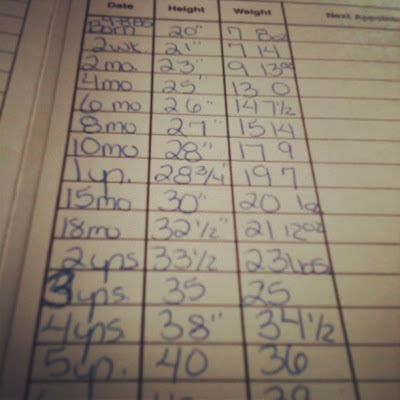 Date Height Weight Next Appoin
Born 20" 7 8oz
2wk. 21" 7 14
2mo. 23" 9 13oz
4mo 25" 13 0
6mo 26" 14 7½
8mo 27" 15 14
10mo 28" 17 9
1yr. 28¾" 19 7
15mo 30" 20 1oz
18mo 32½" 21 12oz
2yrs 33½ 23lbs
3yrs. 35 25
4yrs 38" 34½
5yr. 40 36